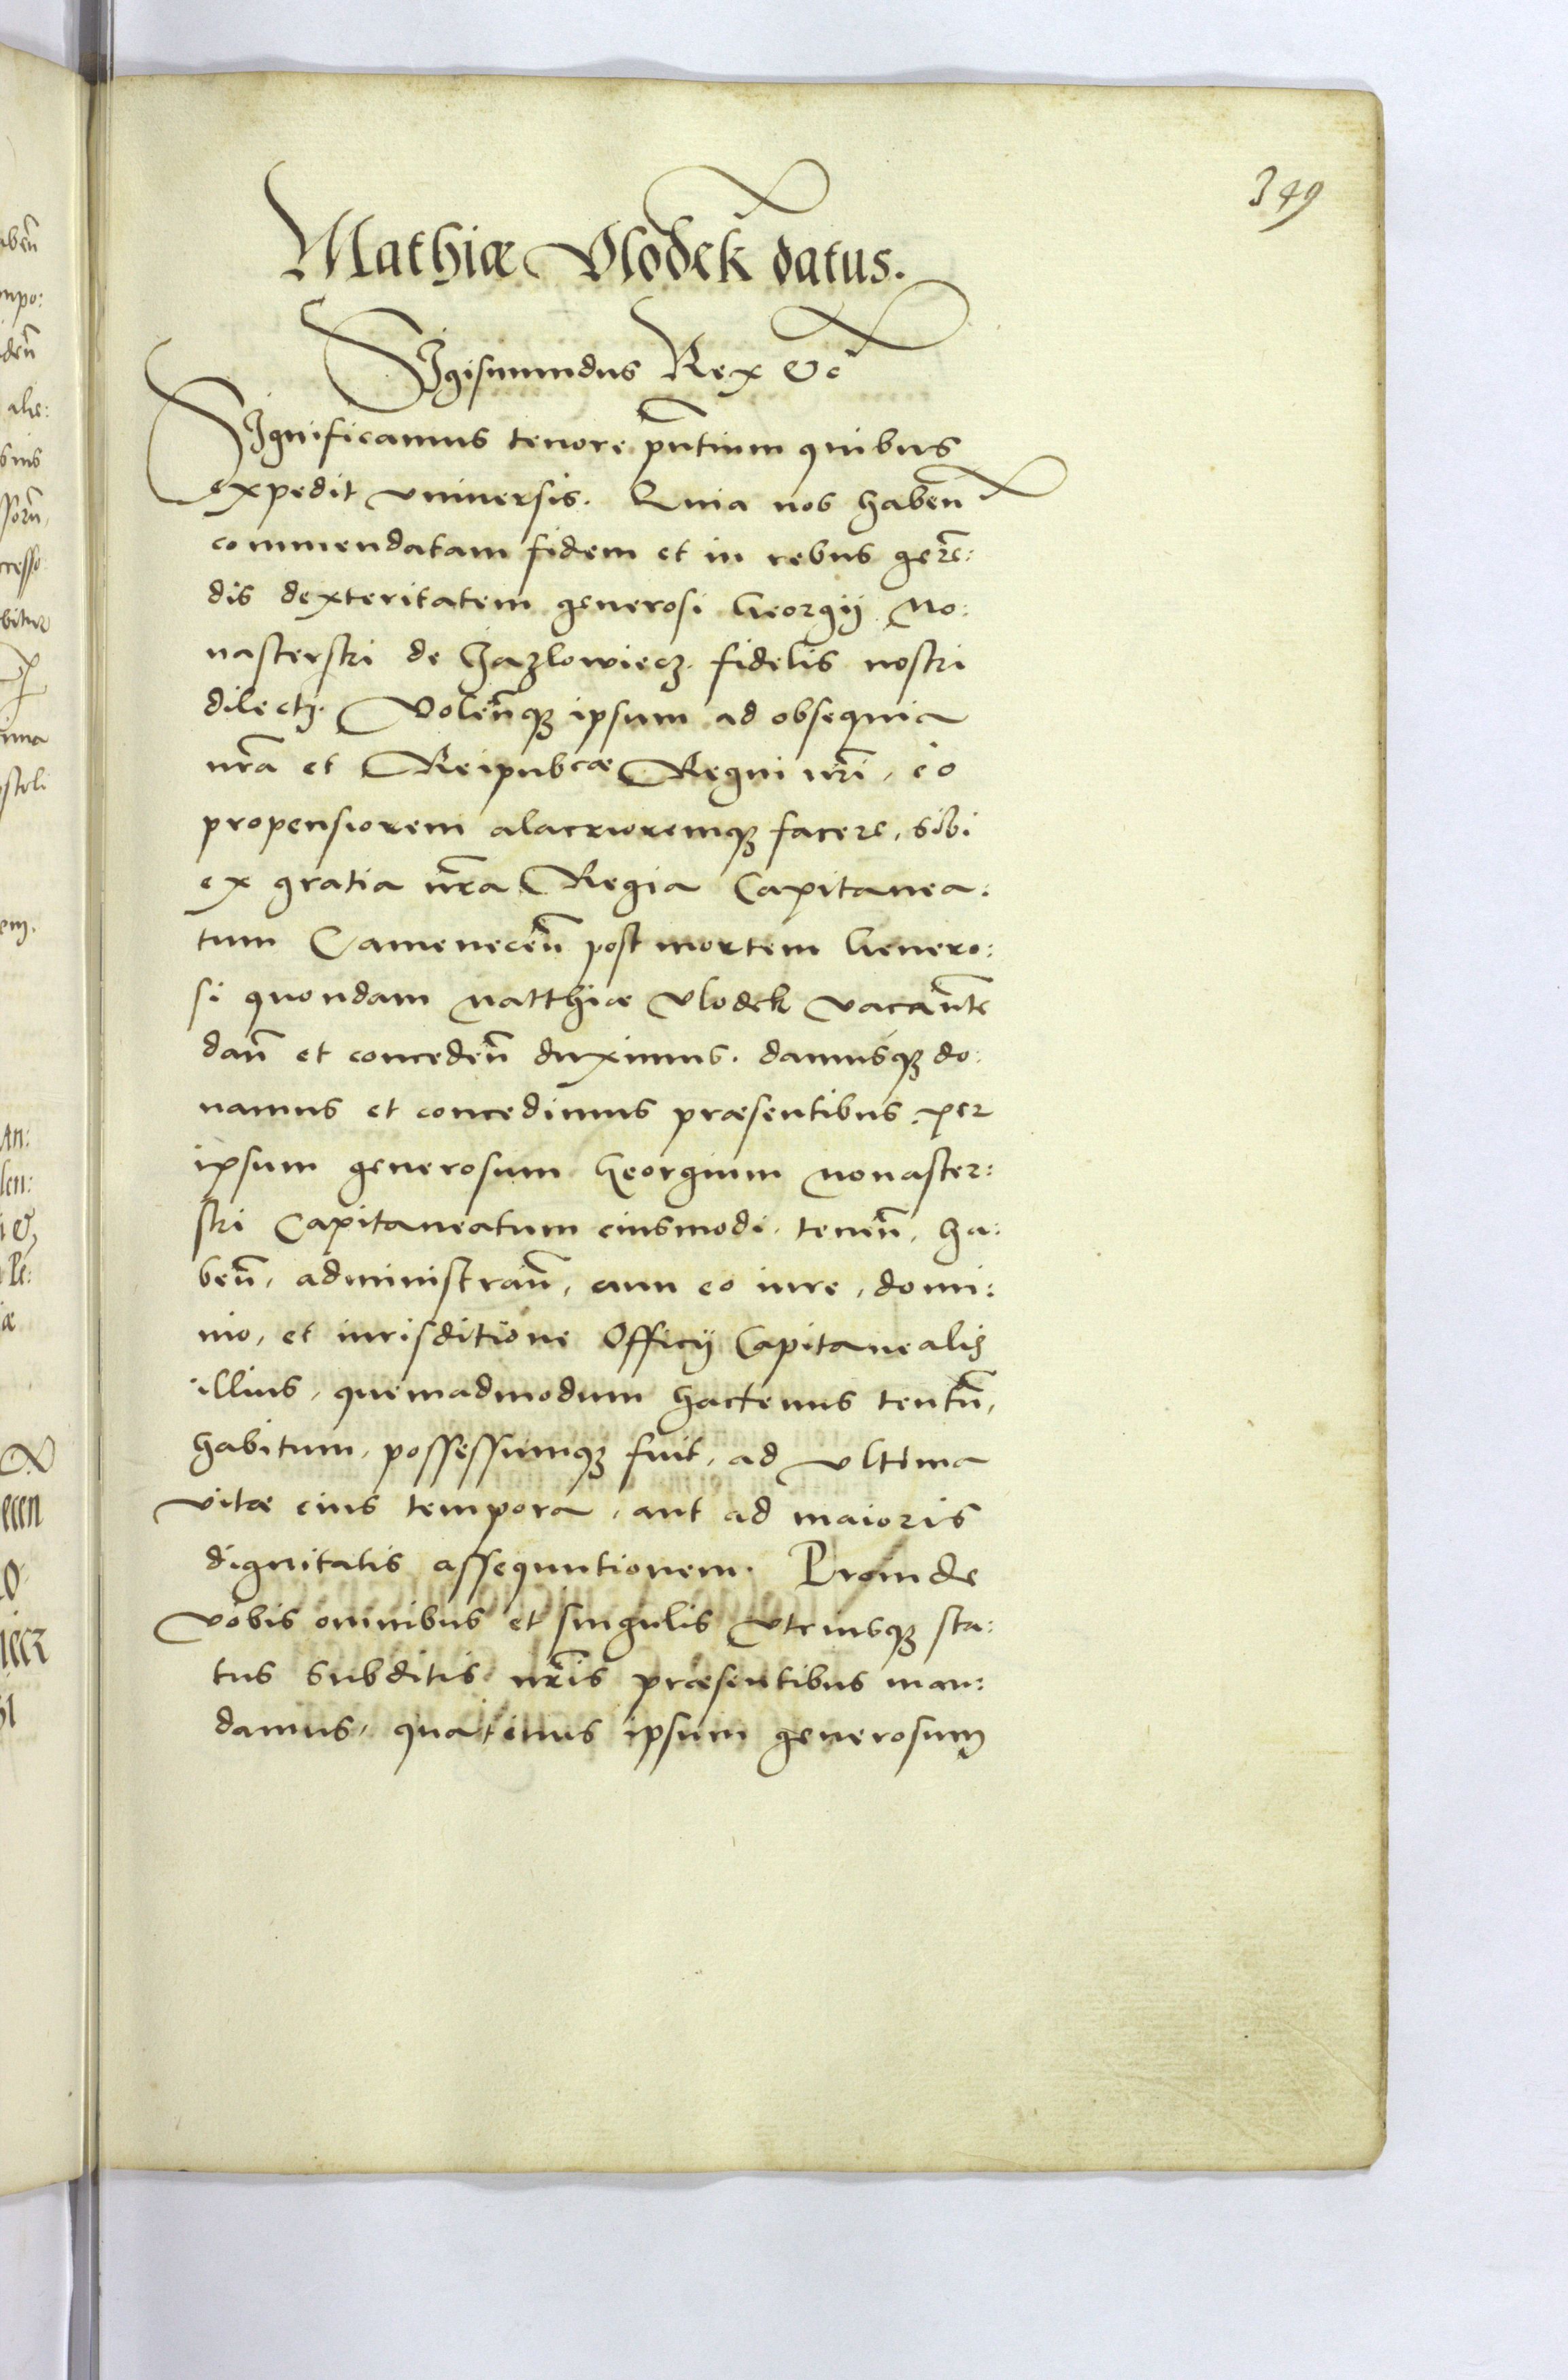 349
Mathiæ Vlodek datus.
Sigismundus Rex &c̃
Significamus tenore pñtium quibus
expedit vniuersis. Quia nos habeñ
commendatam fidem et in rebus gerẽ:
dis dexteritatem generosi Georgij Mo:
nasterski de Jazlowiecz. fidelis nostri
dilecti. Voleñq3 ipsum ad obsequia
nr̃a et Reipubcæ Regni nr̃i, eo
propensiorem alacrioremq3 facere, sibi
ex gratia nr̃a Regia Capitanea:
tum Cameneceñ post mortem Genero:
si quondam Matthiæ Vlodek vacantẽ
dañ et concedeñ duximus. damusq3 do:
namus et concedimus præsentibus. per
ipsum generosum Georgium Monaster:
ski Capitaneatum eiusmodi. teneñ, ha:
beñ, administrañ, cum eo iure, domi:
nio, et iurisditione Officij Capitanealis
illius, quemadmodum hactenus tentũ,
habitum, possessumq3 fuit, ad vltima
vitæ eius tempora, aut ad maioris
dignitatis assequutionem. Proinde
vobis omnibus et singulis vtriusq3 sta:
tus subditis nr̃is præsentibus man:
damus, quatenus ipsum generosum